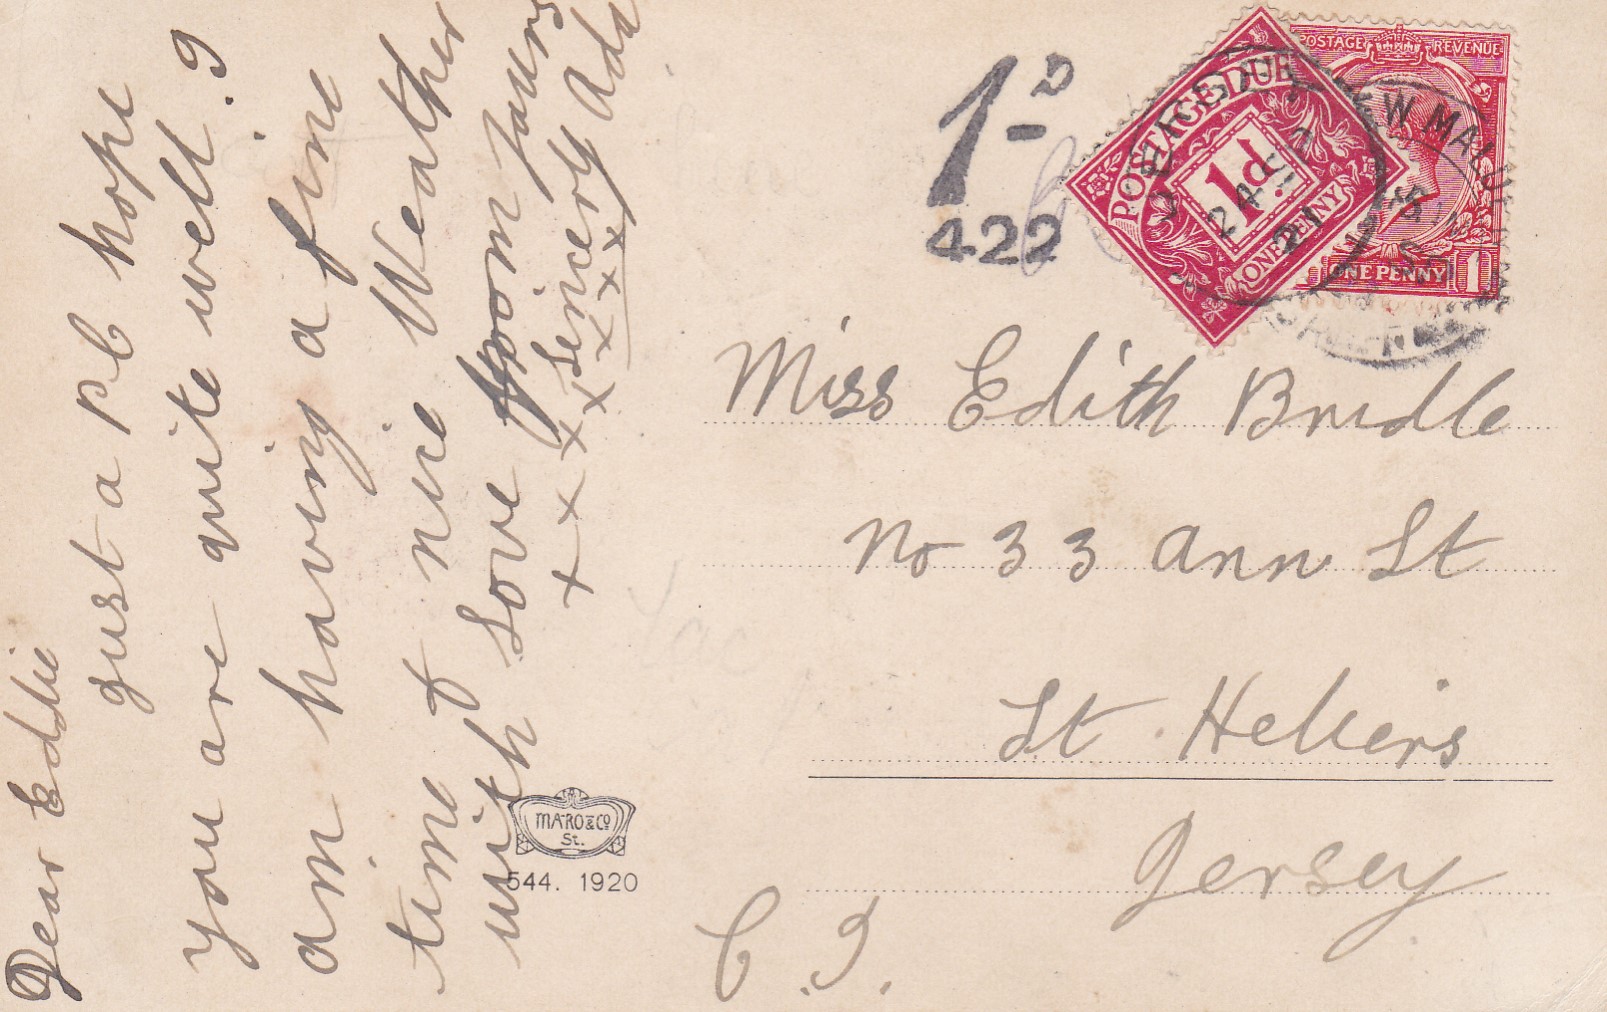 Dear Eddie
Just a P C hope
you are quite well. I
am having a fine
time & nice Weather
with Love from yours
sincerly Ada
x x x x x x x x
1d
422
POSTAGE DUE
1d.
ONE PENNY
24 SP
21
POSTAGE REVENUE
ONE PENNY
1
W MALD
SURREY
Miss Edith Brudle
No 33 Ann St
St. Heliers
Jersey
C. I.
MA-RO & Co
St.
544. 1920